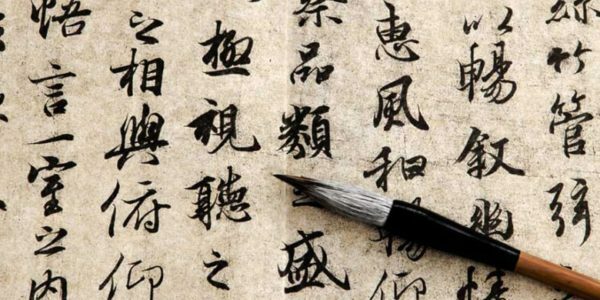 絲竹管弦
以暢敘幽情
惠風和暢仰
察品類之盛
極視聽之
之相與俯仰
悟言一室之內